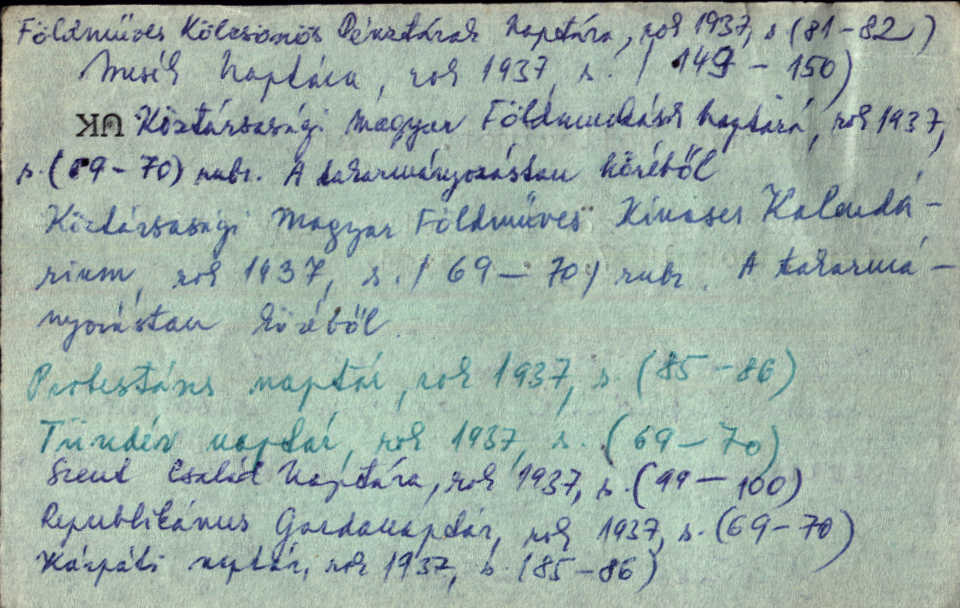 Földműves Kölcsönös Pénztárak Naptára, rok 1937, s. (81-82)
Mesék Naptára, rok 1937 s. (149-150)
UK Köztársasági Magyar Földmunkások Naptára, rok 1937,
s. (69-70) rubr. A takarmányozástan köréből
Köztársasági Magyar Földműves Kincses Kalendá-
rium, rok 1937, s. (69-70) rubr. A takarmá-
nyozástan köréből.
Protestáns naptár, rok 1937, s. (85-86)
Tündér naptár, rok 1937, s. (69-70)
Szent Család Naptára, rok 1937, s. (99-100)
Republikánus Gazdanaptár, rok 1937, s. (69-70)
Kárpáti naptár, rok 1937, s. (85-86)